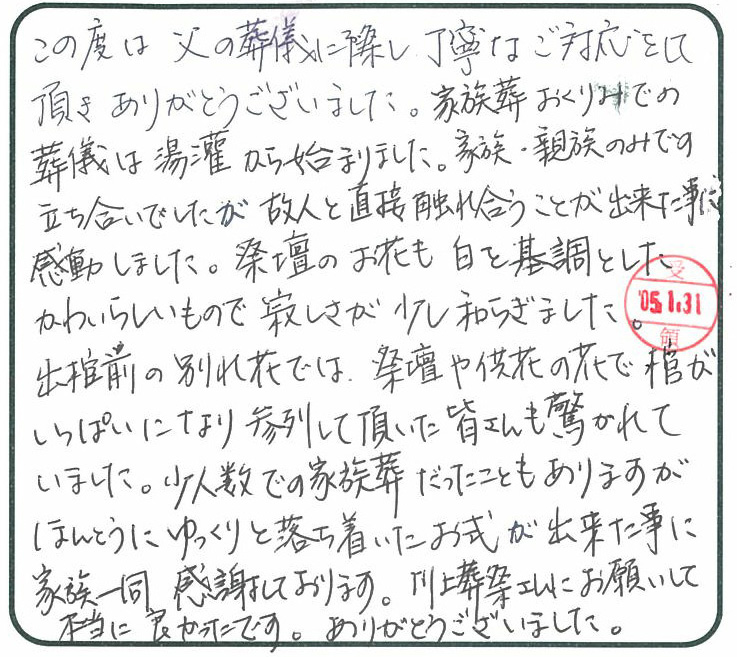 この度は 父の葬儀に際し 丁寧なご対応をして
頂き ありがとうございました。家族葬 おくりみでの
葬儀は 湯灌 から始まりました。家族・親族のみでの
立ち合いでしたが 故人と直接触れ合うことが出来た事に
感動しました。祭壇の お花も 白を基調とした
かわいらしいもので 寂しさが 少し和らぎました。
受 '05.1.31 領
出棺前の 別れ花では、祭壇や供花の花で 棺が
いっぱいになり 参列して頂いた皆さんも驚かれて
いました。少人数での家族葬 だったこともありますが
ほんとうに ゆっくりと落ち着いたお式 が 出来た事に
家族一同 感謝しております。川上葬祭さんにお願いして
本当に 良かったです。ありがとうございました。